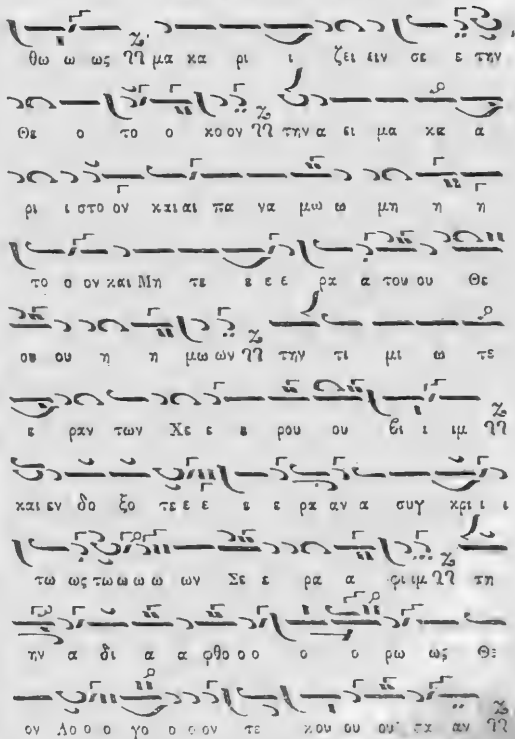 θω ω ως μα κα ρι ι ζει ειν σε ε την
Θε ο το ο κο ον την α ει μα κα α
ρι ι στο ον και αι πα να μω ω μη η η
το ο ον και Μη τε ε ε ε ρα α του ου Θε
ου ου η η μω ων την τι μι ω τε
ε ραν των Χε ε ε ρου ου βι ι ιμ
και εν δο ξο τε ε ε ε ε ρα αν α συγ κρι ι ι
τω ως τω ω ω ω ων Σε ε ρα α φι ιμ τη
ην α δι α α φθο ο ο ο ο ρω ως Θε
ον Λο ο ο γο ο ον τε κου ου ου σα αν